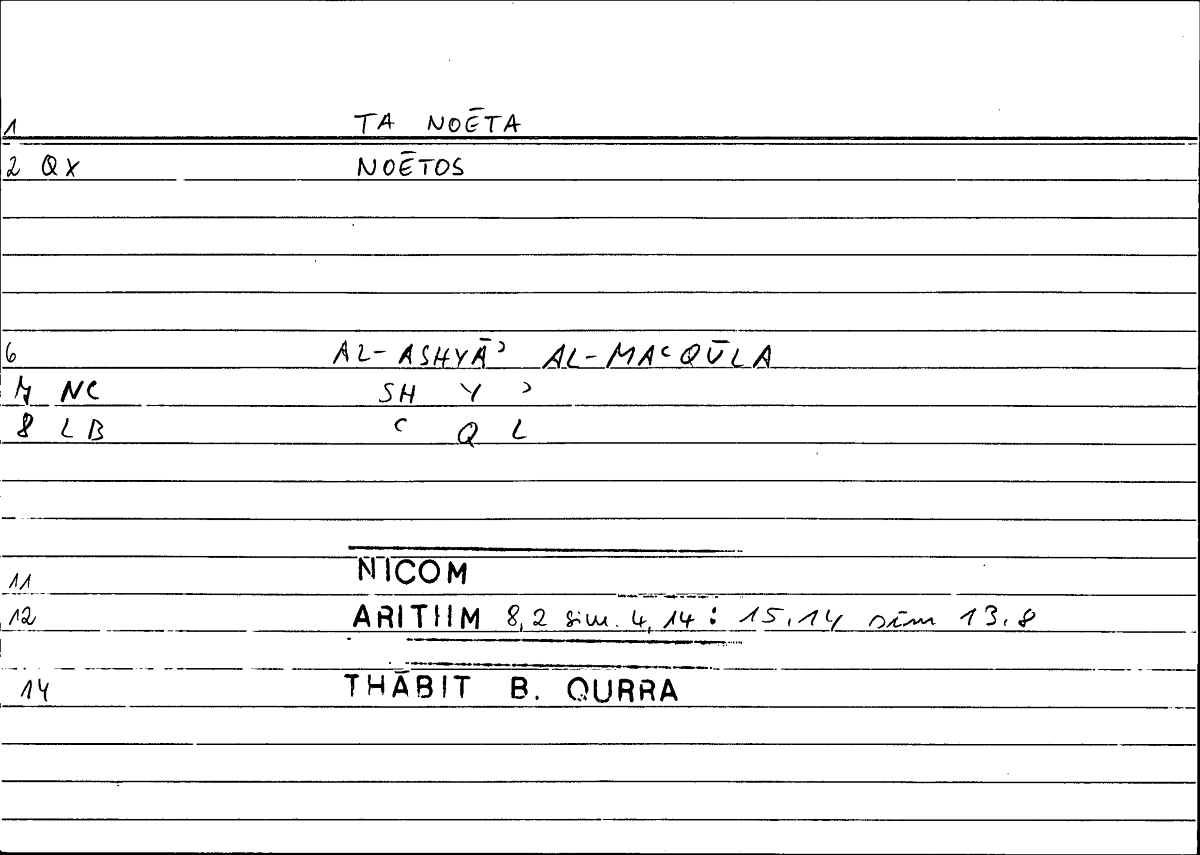 1 TA NOĒTA
2 QX NOĒTOS
6 AL-ASHYĀʾ AL-MAʿQŪLA
7 NC SH Y ʾ
8 LB ʿ Q L
11 NICOM
12 ARITHM 8,2 sim. 4,14 : 15,14 sim 13,8
14 THĀBIT B. QURRA